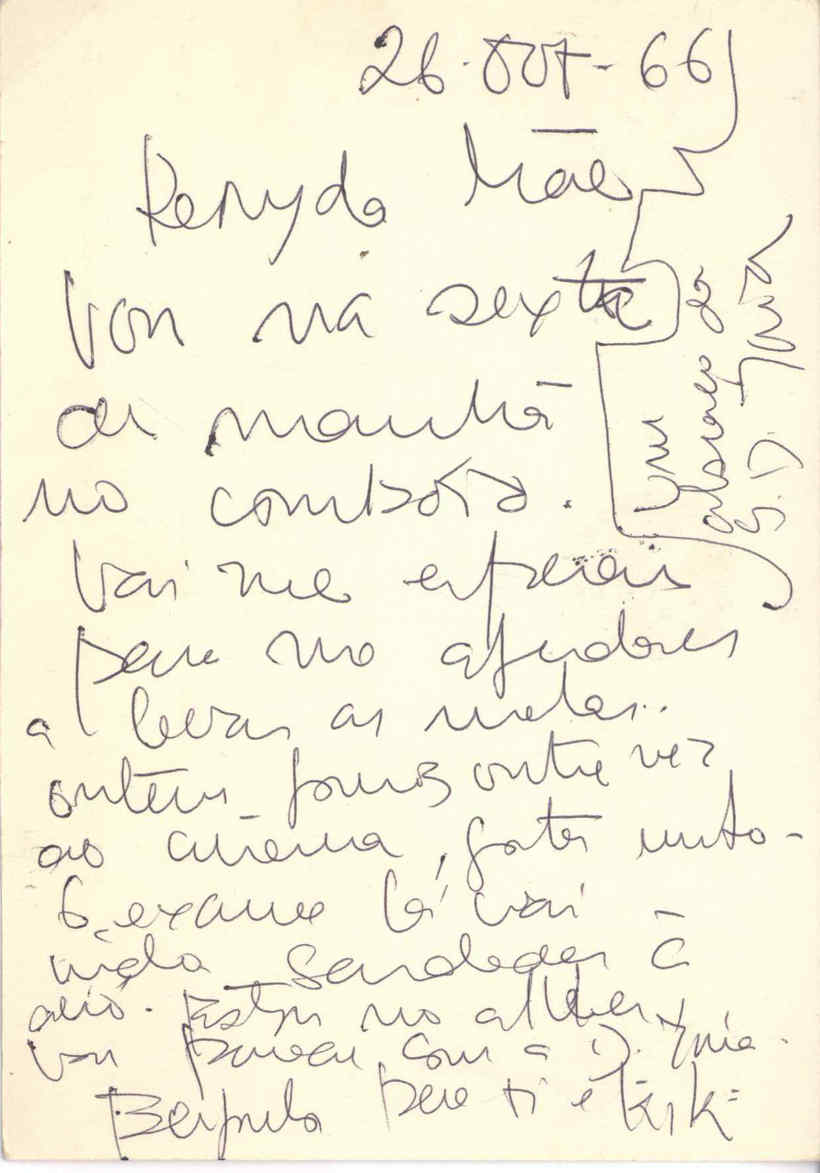 26-OUT-66
Mãe
Vou na sexta
de manhã
no comboio.
Vai me esperar
para me ajudares
a levar as malas..
ontem fomos outra vez
ao cinema, gostei muito-
O exame lá vai
indo Saudades à
avó. Estou no atelier,
vou com a D.
para ti e
Um
abraço da
S.D.